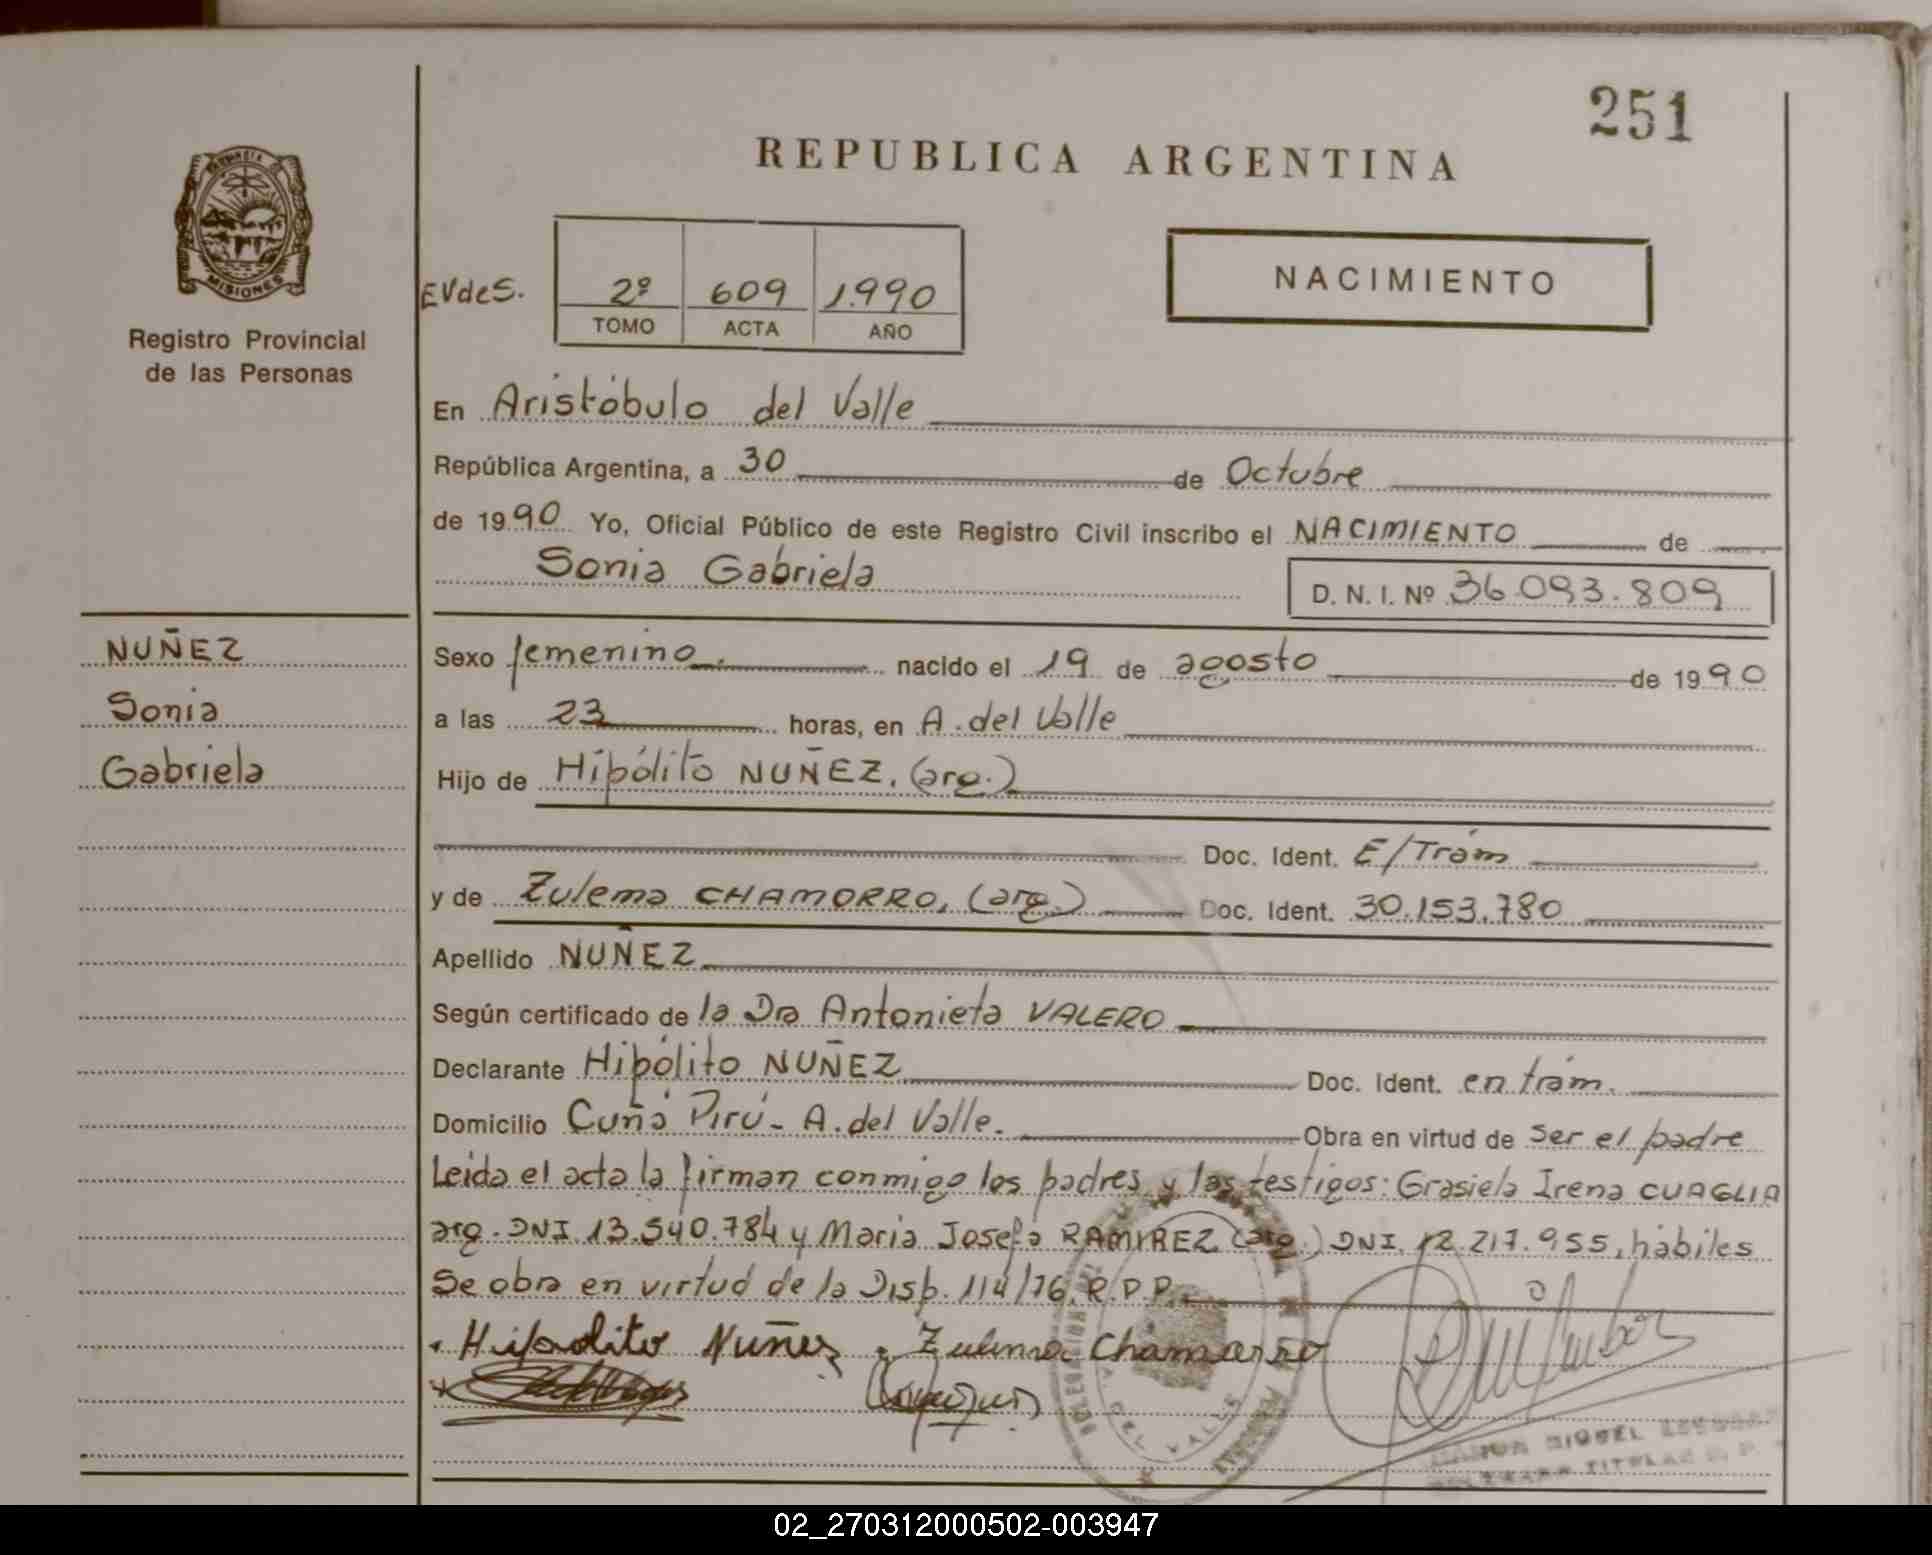 251
REPUBLICA ARGENTINA
PROVINCIA DE
MISIONES
Registro Provincial
de las Personas
EVdeS.
2º 609 1.990
TOMO ACTA AÑO
NACIMIENTO
En Aristóbulo del Valle
República Argentina, a 30 de Octubre
de 1990 Yo, Oficial Público de este Registro Civil inscribo el NACIMIENTO de
Sonia Gabriela
D. N. I. Nº 36.093.809
NUÑEZ
Sonia
Gabriela
Sexo femenino. nacido el 19 de agosto de 1990
a las 23 horas, en A. del Valle
Hijo de Hipólito NUÑEZ. (arg.)
Doc. Ident. E/Trám
y de Zulema CHAMORRO, (arg.) Doc. Ident. 30.153.780
Apellido NUÑEZ
Según certificado de la Dra Antonieta VALERO
Declarante Hipólito NUÑEZ Doc. Ident. en trám.
Domicilio Cuñá Pirú - A. del Valle. Obra en virtud de ser el padre
Leída el acta la firman conmigo los padres y las testigos: Grasiela Irena CUAGLIA
arg. DNI. 13.540.784 y Maria Josefa RAMIREZ (arg.) DNI. 12.217.955, hábiles
Se obra en virtud de la Disp. 114/76. R.P.P.
Hipolito Nuñez Zulema Chamorro
DEL VALLE
RAMON MIGUEL
TITULAR
02_270312000502-003947